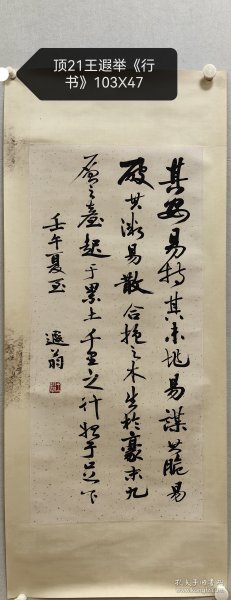 顶21王遐举《行
书》103X47
其安易持其未兆易谋其脆易
破其微易散合抱之木生于豪末九
层之台起于累土千里之行始于足下
壬午夏至 遐翁
孔夫子旧书网